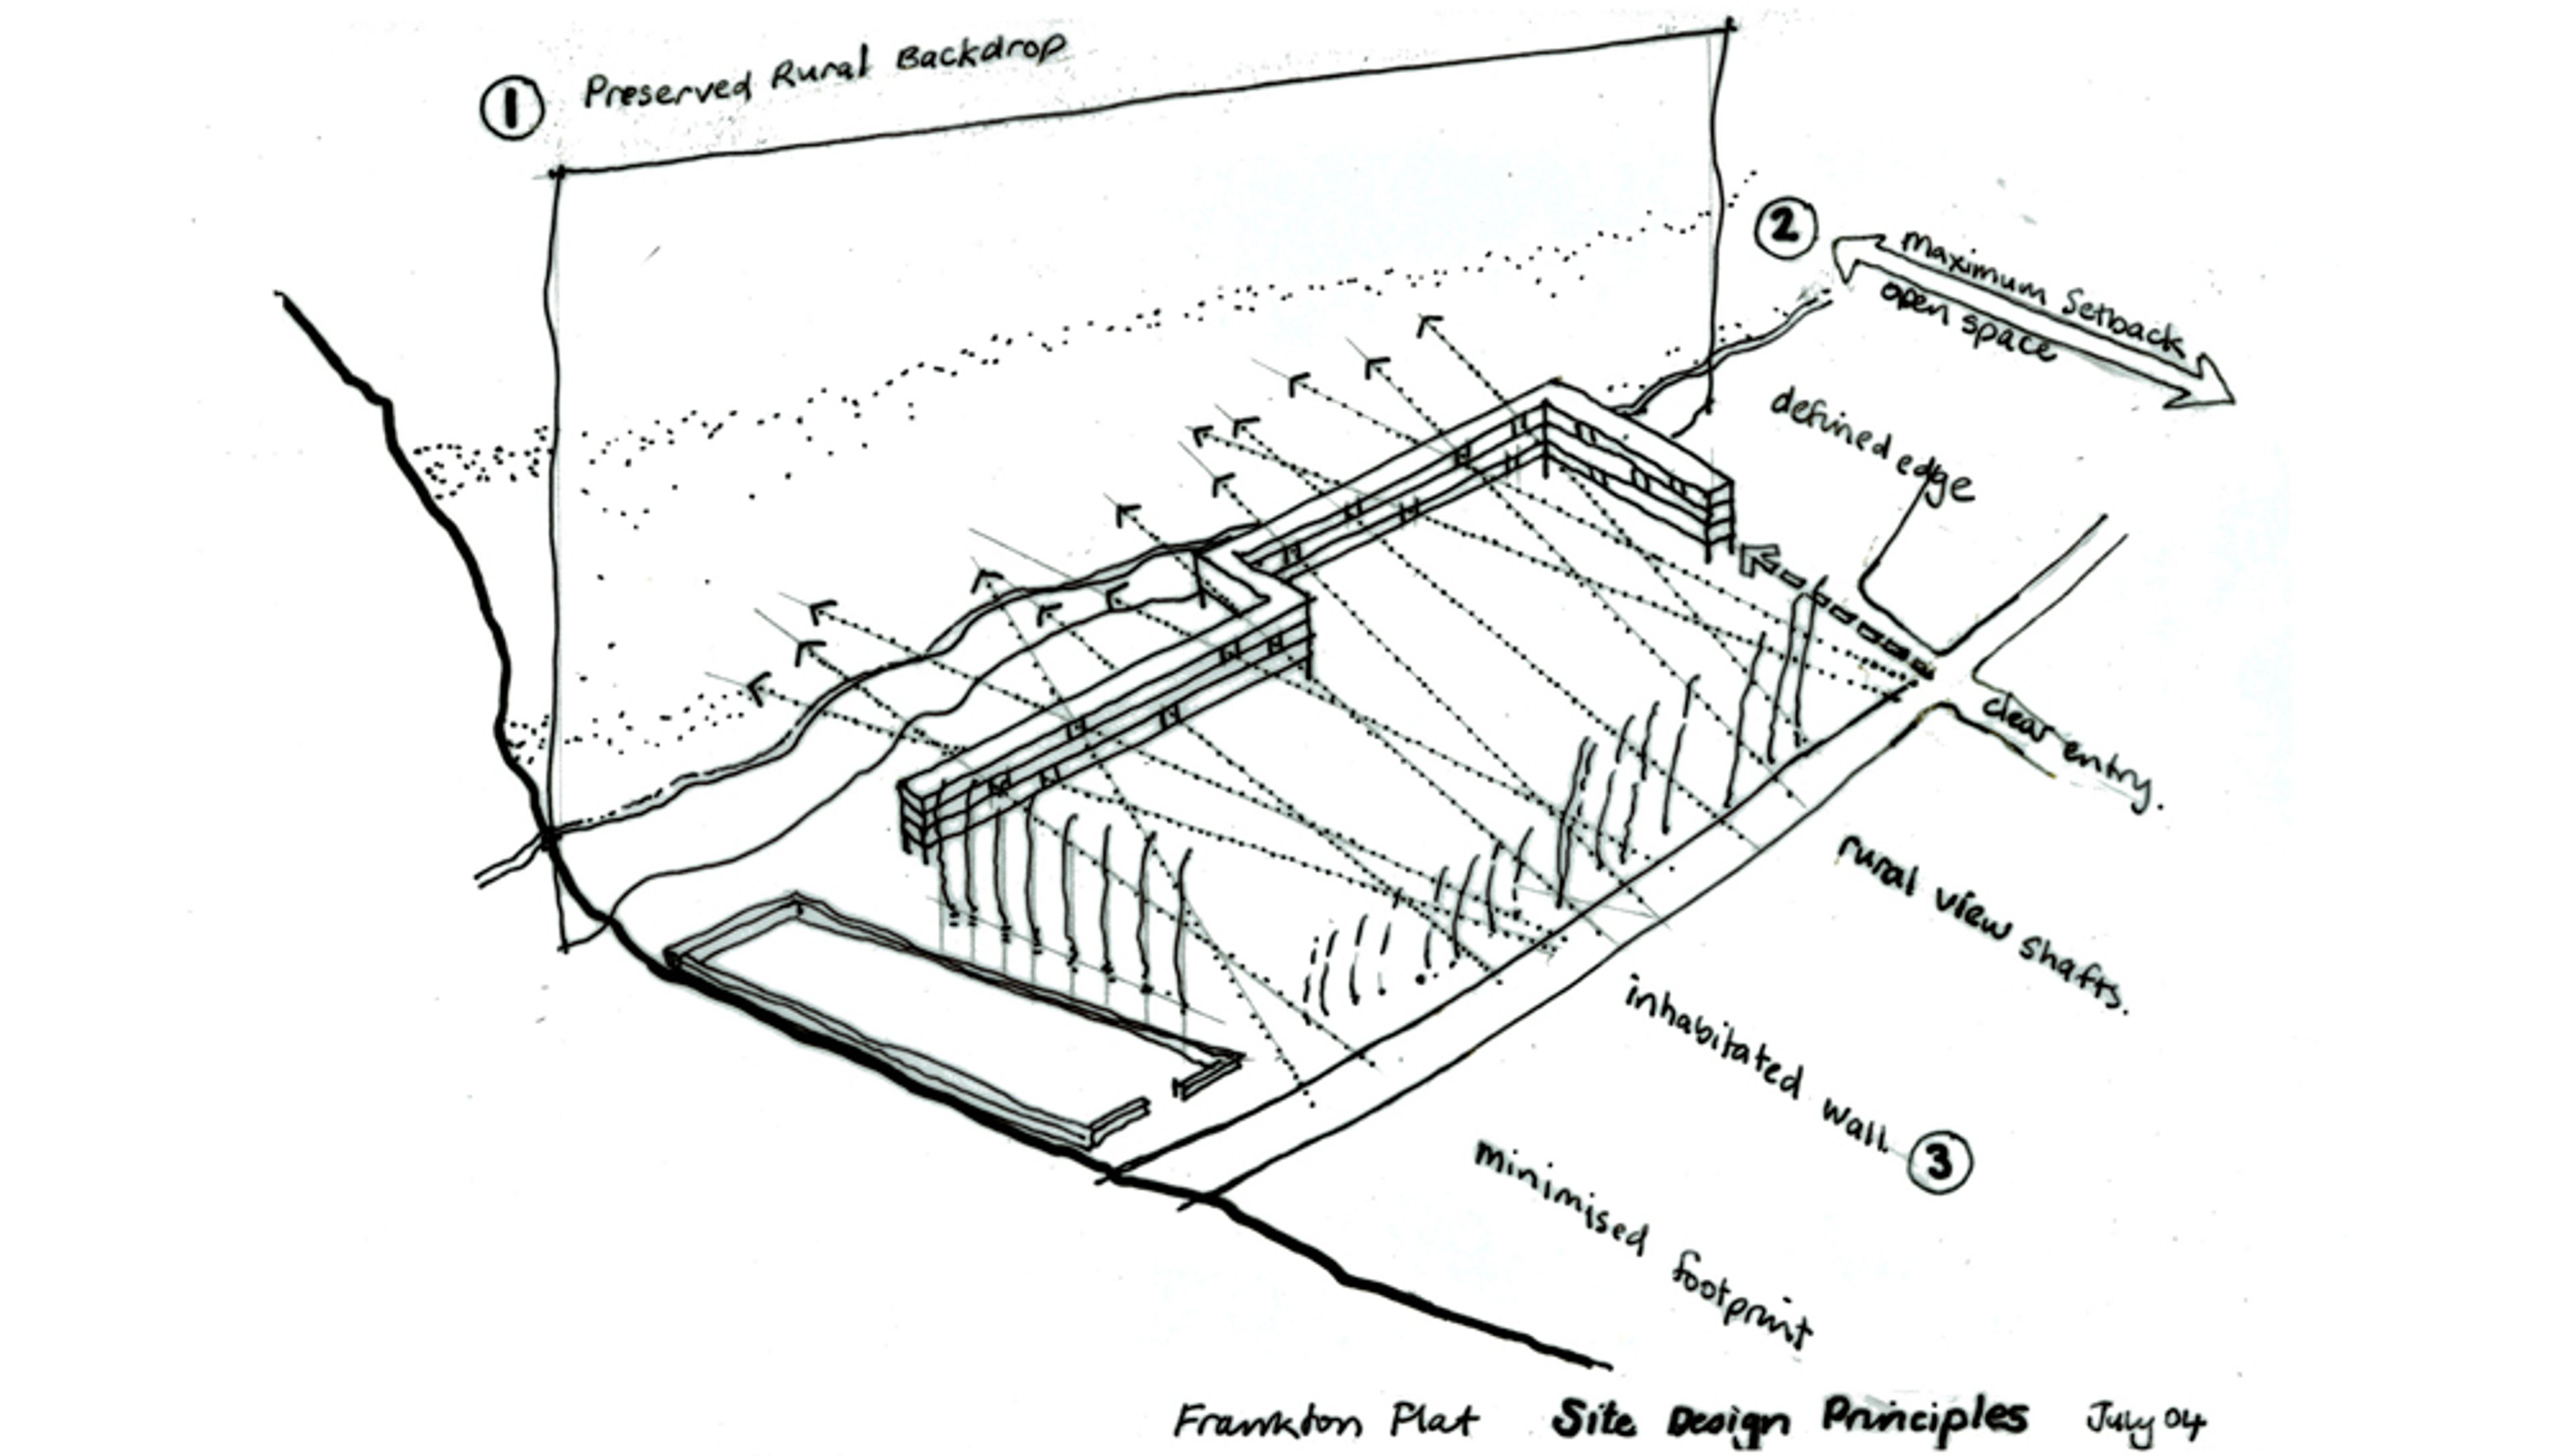 1 Preserved Rural Backdrop
2
maximum Setback
open space
defined edge
clear entry.
rural view shafts.
inhabitated wall. 3
minimised footprint
Frankton Flat Site Design Principles July 04